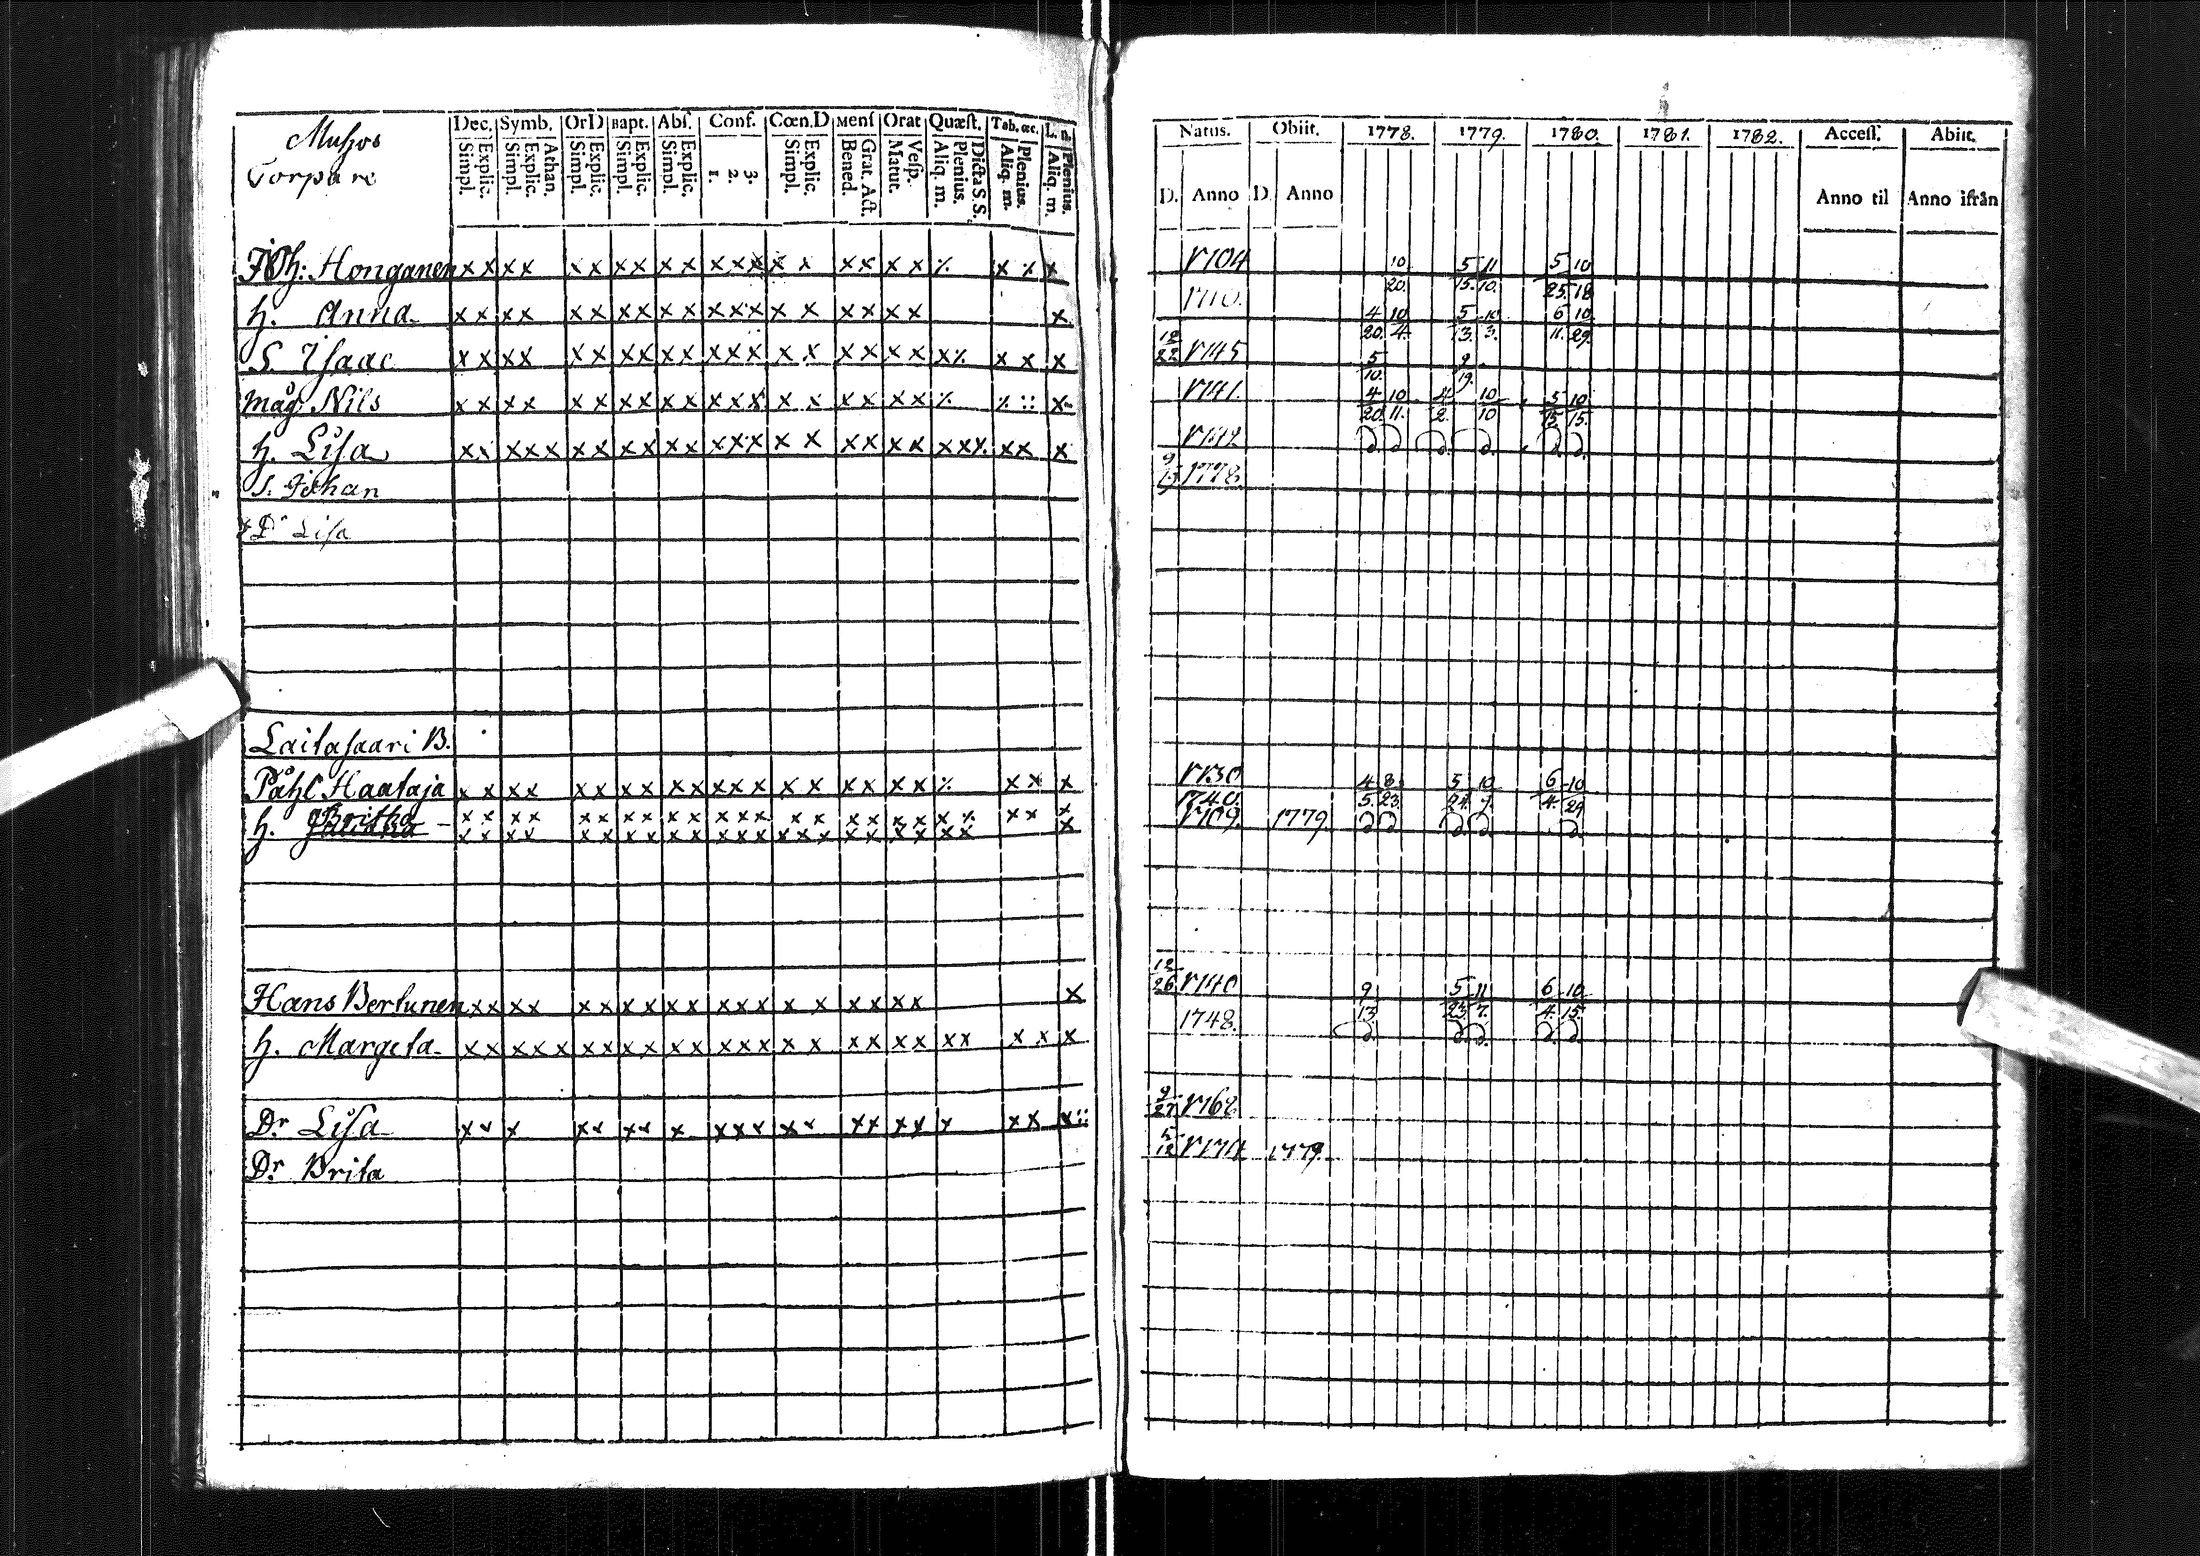 Muhos
Torpare
Dec. Symb. OrD Bapt. Abſ. Conf. Cœn.D Menſ Orat Quæſt. Tab. œc. L. n.
Explic. Simpl. Athan. Explic. Simpl. Explic. Simpl. Explic. Simpl. Explic. Simpl. 3. 2. 1. Explic. Simpl. Grat. Act. Bened. Veſp. Matut. Dicta S.S. Plenius. Aliq. m. Plenius. Aliq. m. Plenius. Aliq. m.
Natus. Obiit. 1778. 1779. 1780. 1781. 1782. Acceſſ. Abiit.
D. Anno D. Anno Anno til Anno ifrån
Joh: Honganen 1704 10/20. 5/15. 11/10. 5/25. 10/18
h. Anna 1710. 4/20. 10/4. 5/13. 10/3. 6/11. 10/29.
S. Iſaac 12/22 1745 5/10. 9/19.
Måg Nils 1741. 4/20. 10/11. 4/2. 10/10 5/15. 10/15.
h. Liſa
S. Johan 1778.
Dr Liſa
Laitaſaari B.
Påhl Haataja 1730 4/5. 8/23. 5/24. 10/7. 6/4. 10/29
h. Britha 1740.
1709. 1779
Hans Bertunen 12/26 1740 9/13 5/23. 11/7. 6/4. 10/15.
h. Margeta 1748.
Dr Liſa 9/27 1768
Dr Brita 5/12 1774 1779.